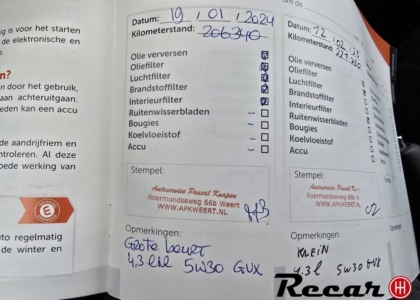 ig is voor het starten
de elektronische en
n?
en door het gebruik,
aan achteruitgaan.
eden kan een accu
de aandrijfriem en
ntroleren. Al deze
oede werking van
uto regelmatig
de winter en
Datum: 19 / 01 / 2024
Kilometerstand: 206340
Olie verversen
Oliefilter
Luchtfilter
Brandstoffilter
Interieurfilter
Ruitenwisserbladen
Bougies
Koelvloeistof
Accu
Stempel:
Autoservice Pascal
Roermondseweg 66b Weert
WWW.APKWEERT.NL
Opmerkingen:
Grote beurt
4.3 5W30 GVX
Datum: 12
Kilometerstand:
Olie verversen
Oliefilter
Luchtfilter
Brandstoffilter
Interieurfilter
Ruitenwisserbladen
Bougies
Koelvloeistof
Accu
Stempel:
Autoservice Pascal
Roermondseweg 66b
WWW.APKWEERT.NL
Opmerkingen:
KLEIN
4.3 l 5W30 GVX
Recar